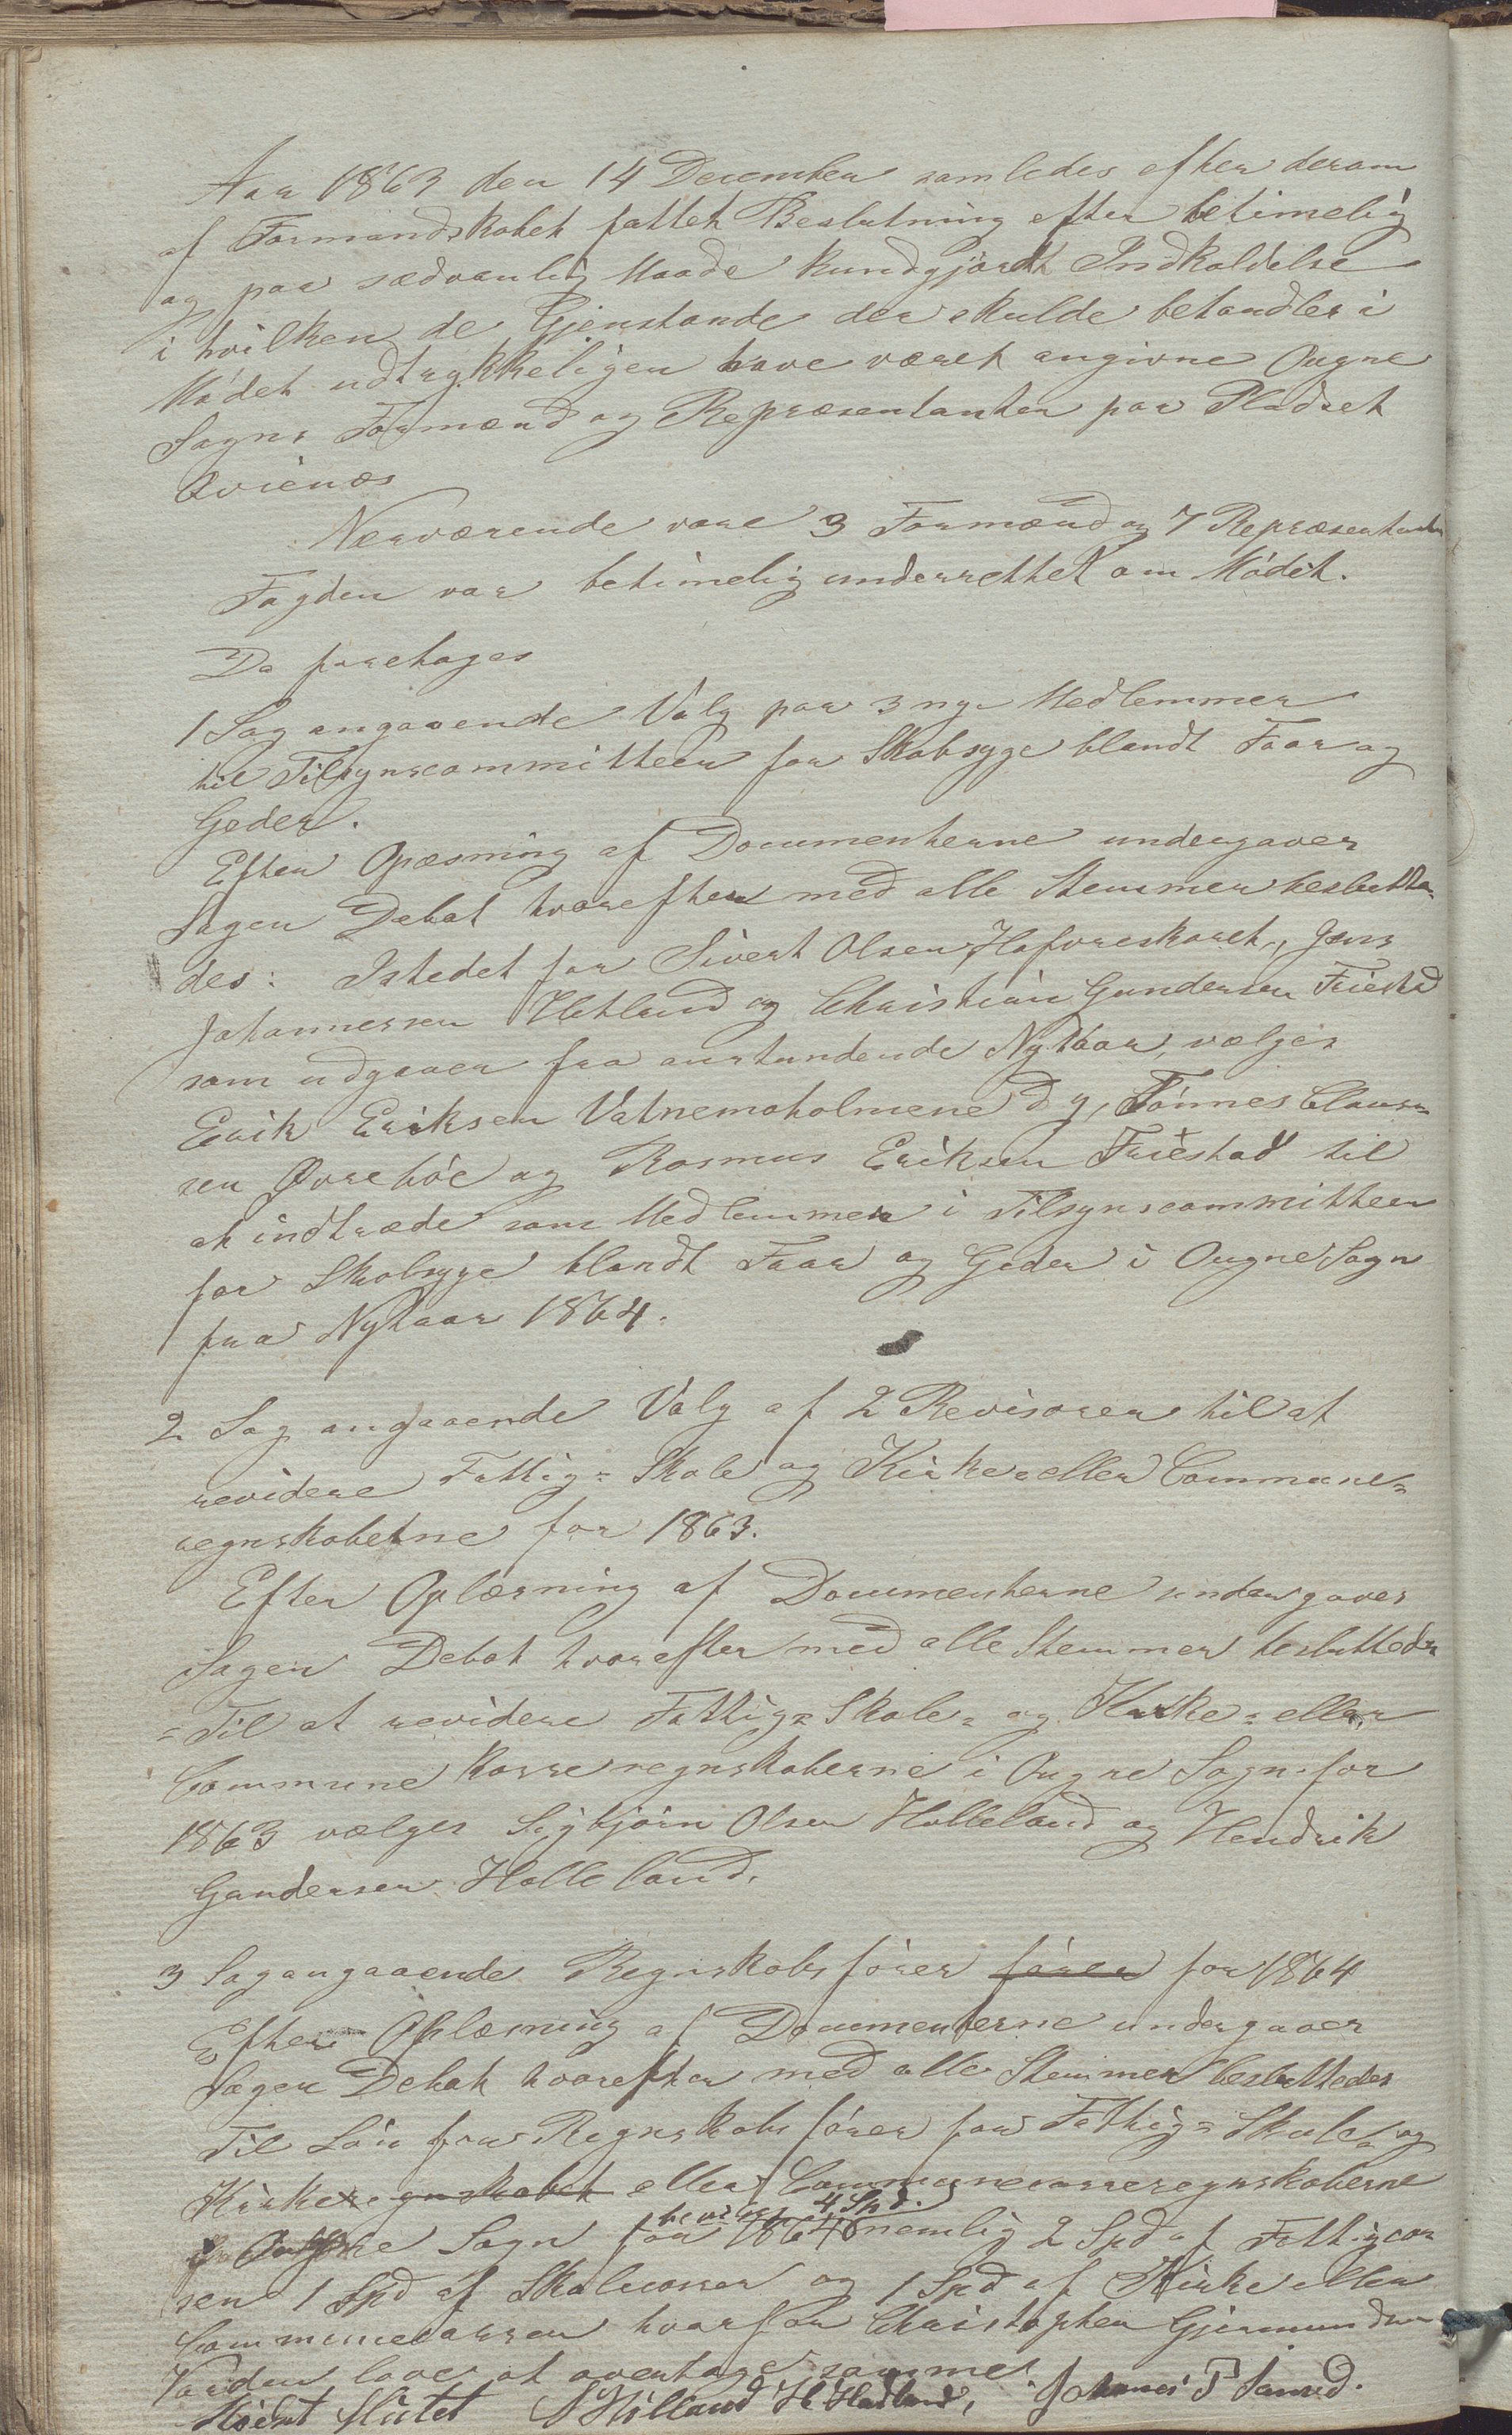 Aar 1863 den 14 December samledes efter derom
af Formandskabet fattet Beslutning efter betimelig
og paa sædvanlig Maade kundgjordt Indkaldelse
i hvilken de Gjenstande der skulde behandles i
Mødet udtrykkeligen have været angivne Ougne
Sogns Formænd og Repræsentanter paa Pladset
Qvienæs
Nærværende vare 3 Formænd og 7 Repræsentanter
Fogden var betimelig underrettet om Mødet.
Da foretoges
1 Sag angaaende Valg paa 3 nye Medlemmer
til Tilsynscommitteen for Skabsyge blandt Faar og
Geder.
Efter Opæsning af Documenterne undergaves
Sagen Debat hvorefter med alle Stemmer beslutte-
des: Istedet for Sivert Olsen Hafvreskaret, Jens
Johannessen Hetland og Christian Gundersen Friestad
som udgaaer fra anstundende Nytaar, vælges
Erik Eriksen Vatnemoholmene d y, Tönnes Claus=
sen Qvreböe og Rasmus Eriksen Friestad til
at indtræde som Medlemmer i Tilsynscommitteen
for Skabsyge blandt Faar og Geder i Ougne Sogn
fra Nytaar 1864.
2 Sag angaaende Valg af 2 Revisorer til at
revidere Fattig= Skole og Kirke= eller Commune=
regnskaberne for 1863.
Efter Oplæsning af Documenterne undergaves
Sagen Debat hvorefter med alle Stemmer besluttedes
= Til at revidere Fattig= Skole= og Kirke= eller
Commune kasseregnskaberne i Ougne Sogn for
1863 vælges Sigbjörn Olsen Holleland og Hendrik
Gundersen Holleland.
3 Sag angaaende Regnskabsfører fører for 1864
Efter Oplæsning af Documenterne undergaves
Sagen Debat hvorefter med alle Stemmer besluttedes
Til Løn for Regnskabsfører for Fattig= Skole= og
Kirkeregnskabet eller Communecasseregnskaberne
bevilges 4 Spd.
i Ougne Sogn for 1864 nemlig 2 Spd af Fattigcas
sen 1 Spd af Skolecassen og 1 Spd af Kirke eller
Communecassen hvorfor Christopher Gjermundsen
Varden lover at overtage samme
Mødet Slutet S Hölland H Hadland, Johanes T Sanred.